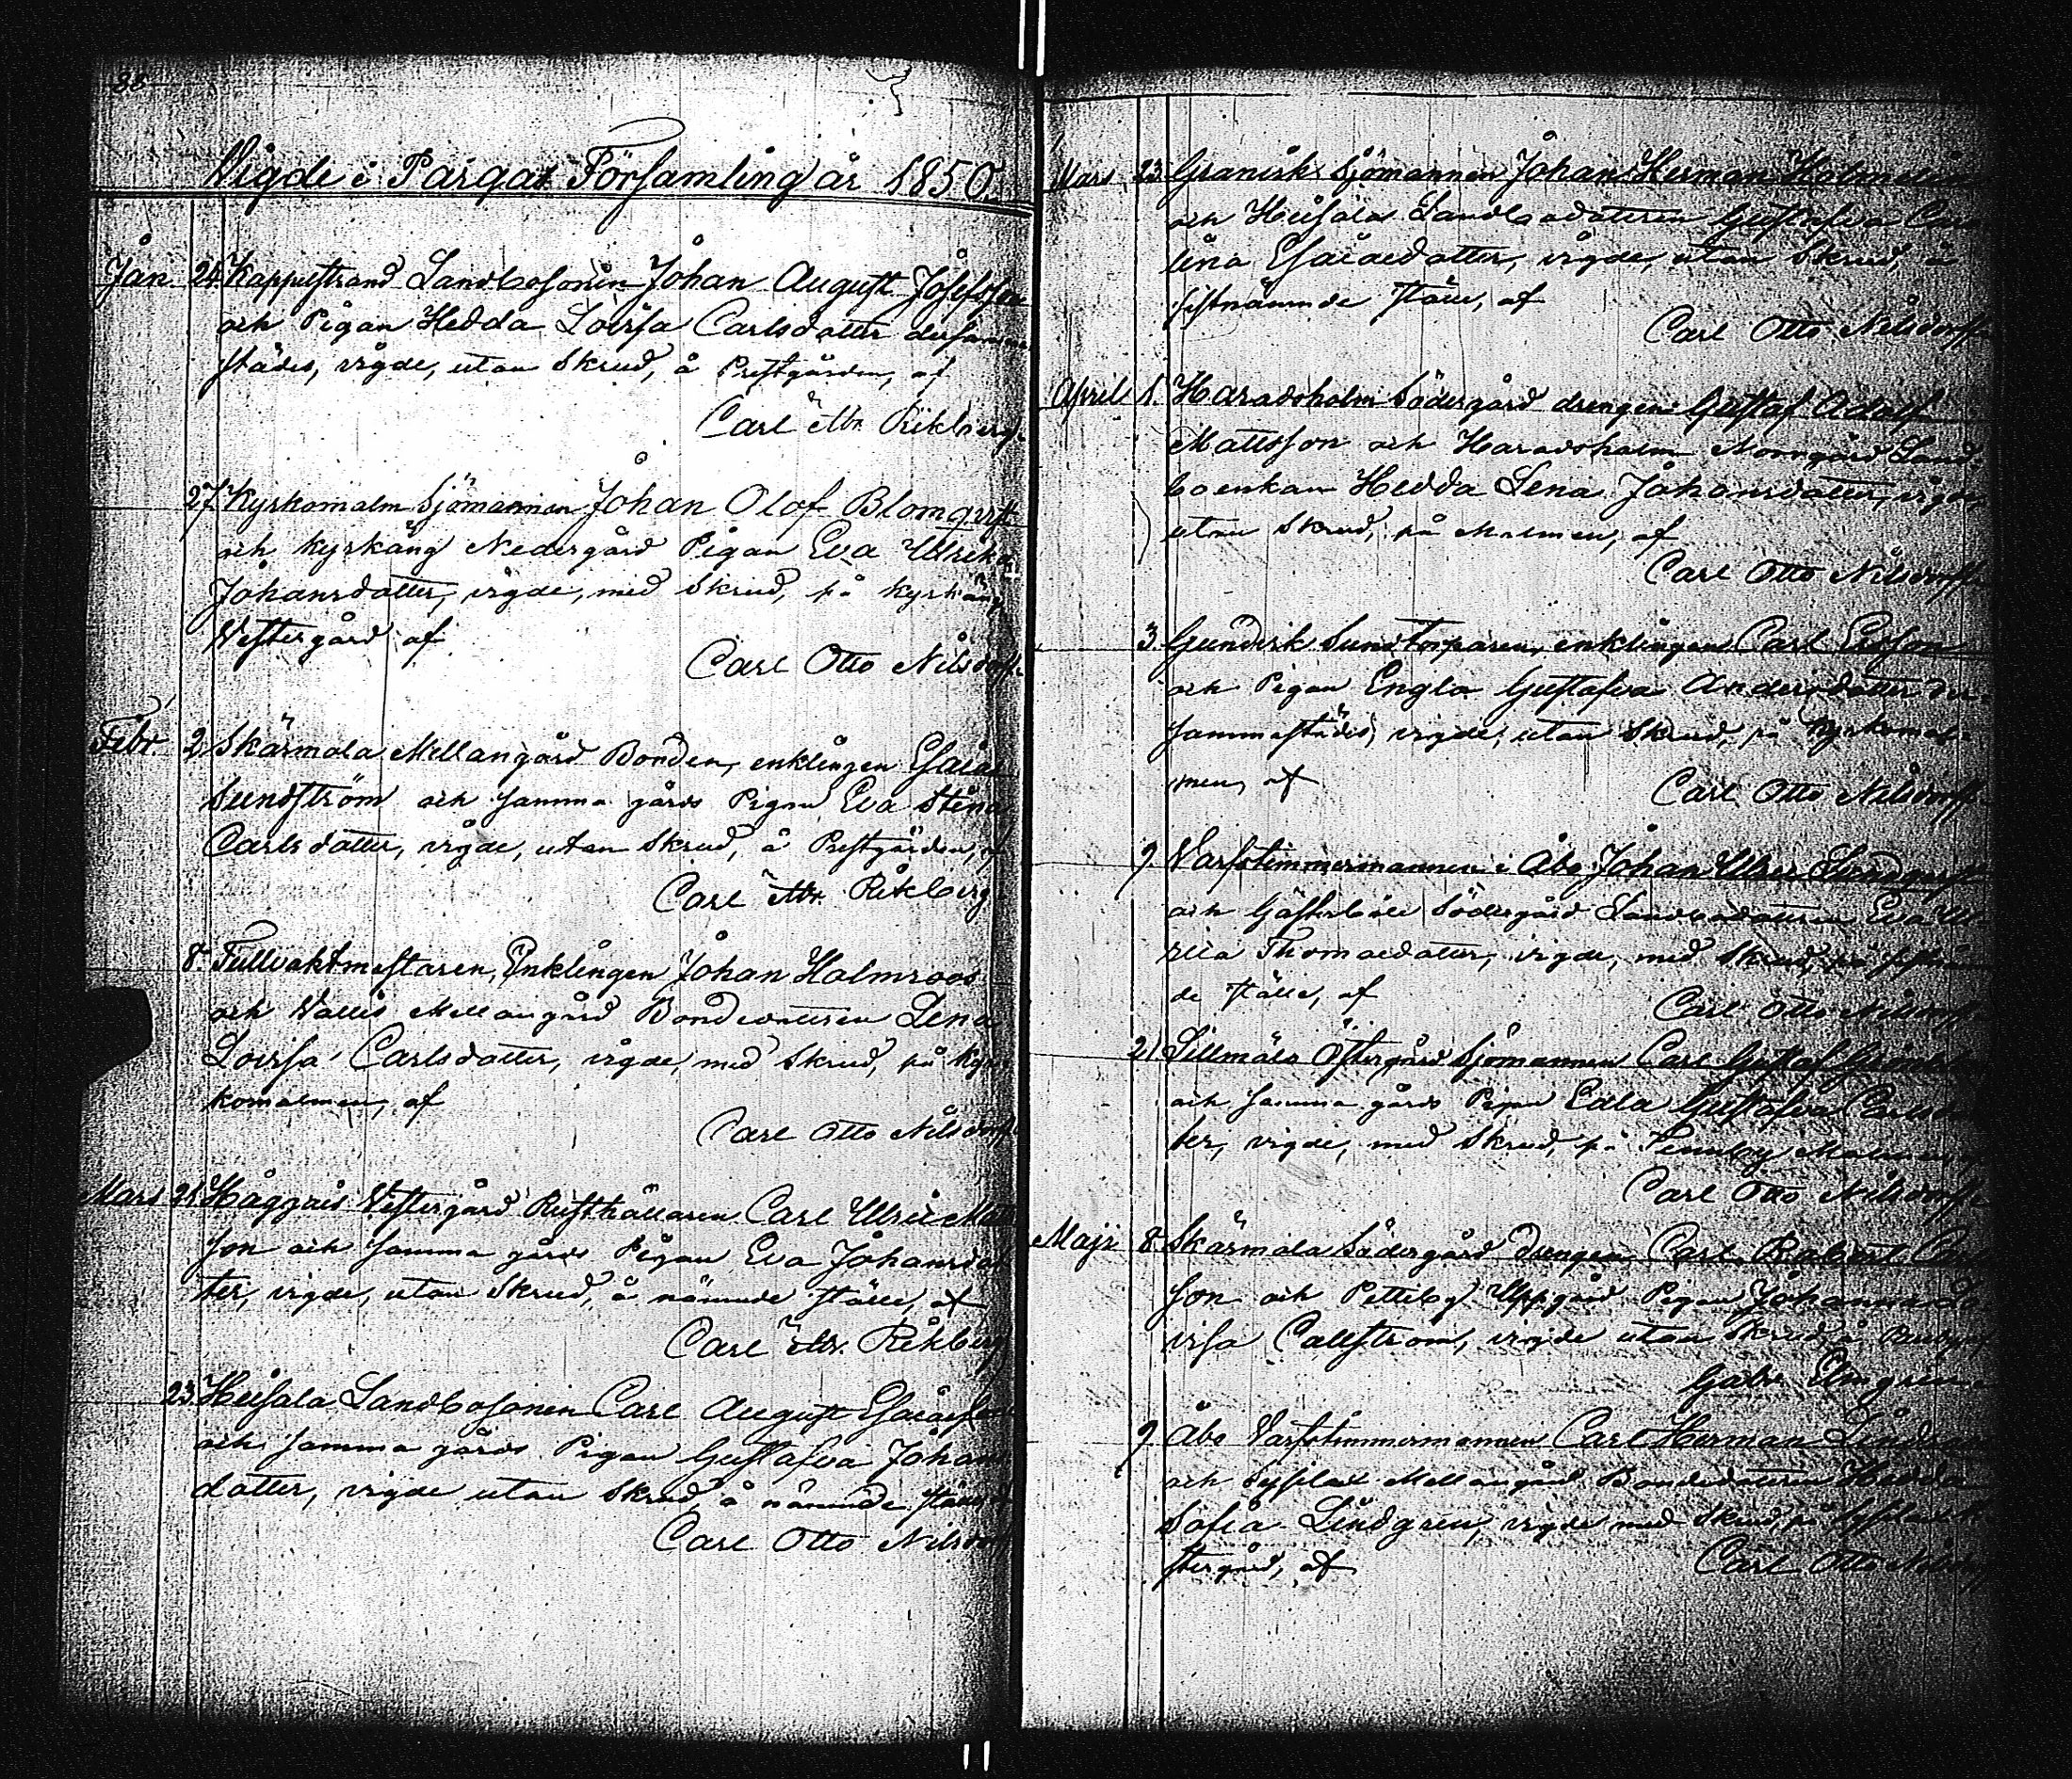 Vigde i Pargas Församling år 1850.
Jan. 24. Kappelstrand Landbosonen Johan August Josefsson
och Pigan Hedda Lovisa Carlsdotter dersamma
städes, vigde, utan Skrud, å Prestgården, af
Carl Mr. Rikberg.
27. Kyrkomalm Sjömannen Johan Olof Blomqvist
och Kyrkäng Nedergård Pigan Eva Ulrika
Johansdotter, vigde, med Skrud, på Kyrkäng
Vestergård af
Carl Otto Nilsdorff.
Febr 2. Skärmola Mellangård Bonden, enklingen Esaias
Sundström och samma gårds Pigan Eva Stina
Carlsdotter, vigde, utan Skrud, å Prestgården, af
Carl Mr. Rikberg.
8. Tullvaktmestaren, Enklingen Johan Holmroos
och Vallis Mellangård Bondedottren Lena
Lovisa Carlsdotter, vigde, med Skrud, på Kyr
komalmen, af
Carl Otto Nilsdorff.
Mars 21. Häggnäs Vestergård Rusthållaren Carl Ulric
son och samma gårds Pigan Eva Johansdot
ter, vigde, utan Skrud, å nämnde ställe, af
Carl Mr. Rikberg
23. Heisala Landbosonen Carl August Esaiasson
och samma gårds Pigan Gustafva Johans
dotter, vigde utan Skrud, å nämnde ställe
Carl Otto Nilsdorff
Mars 23. Granvik Sjömannen Johan Herman
och Heisala Landbodottren Gustafva Caro
lina Esaiaedotter, vigde, utan Skrud, å
sistnämnde ställe, af
Carl Otto Nilsdorff
April 1. Haradsholm Södergård drengen Gustaf Adolf
Mattsson och Haradsholm Norrgård Land
boenkan Hedda Lena Johansdotter, vigde,
utan Skrud, på Malmen, af
Carl Otto Nilsdorff
3. Gundvik Sund Torparen, enklingen Carl Ersson
och Pigan Engla Gustafva Andersdotter der
sammastädes, vigde, utan Skrud, på Kyrkomal
men, af
Carl Otto Nilsdorff
9. Varfstimmermannen i Åbo Johan Ulric
och Södergård Landbodottren Eva Ul
rica Thomaedotter, vigde, med Skrud, på
de ställe, af
Carl Otto Nilsdorff
21. Sillmäla Östergård Sjömannen Carl Gustaf
och samma gårds Pigan Edla Gustafva Carlsdot
ter, vigde, med Skrud, på Tennby Malmen,
Carl Otto Nilsdorff
Maji 8. Skärmola Södergård Drengen Carl Robert
son och Pettiby Uppgård Pigan Johanna Lo
visa Callström, vigde utan Skrud, å
Gabr. Elmgren.
9. Åbo Varfstimmermannen Carl Herman
och Sysilax Mellangård Bondedottren Hedda
Sofia Lindgren, vigde med Skrud, på Sysilax
stergård, af
Carl Otto